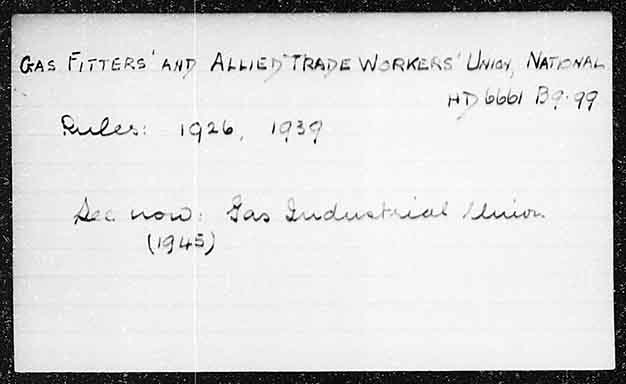 GAS FITTERS' AND ALLIED TRADE WORKERS' UNION, NATIONAL
HD 6661 B9.99
Rules: 1926, 1939
See now: Gas Industrial Union
(1945)